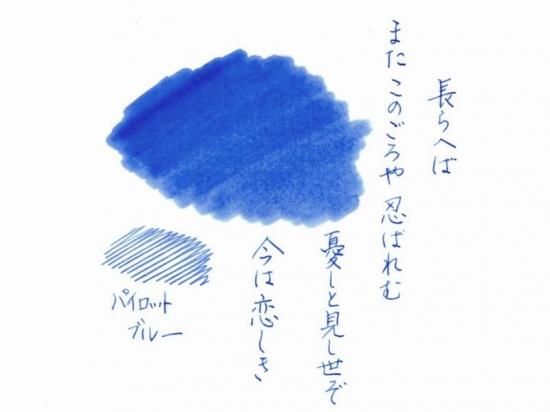 長らへば
またこのごろや忍ばれむ
憂しと見し世ぞ
今は恋しき
パイロット
ブルー